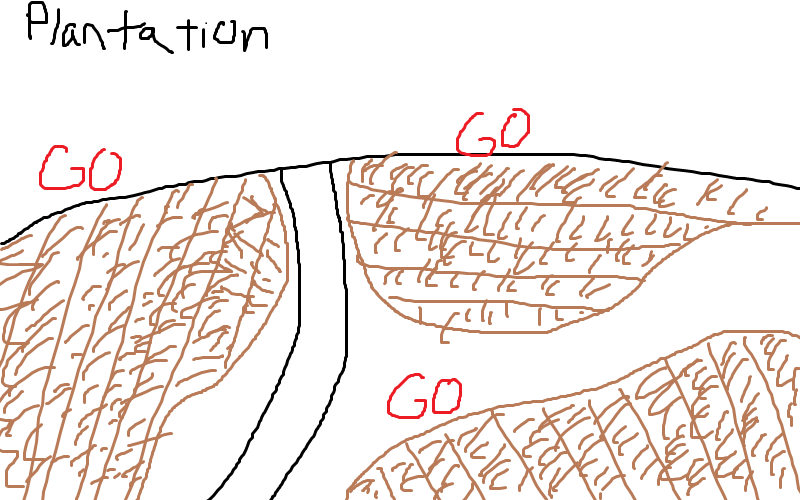 Plantation
GO
GO
GO